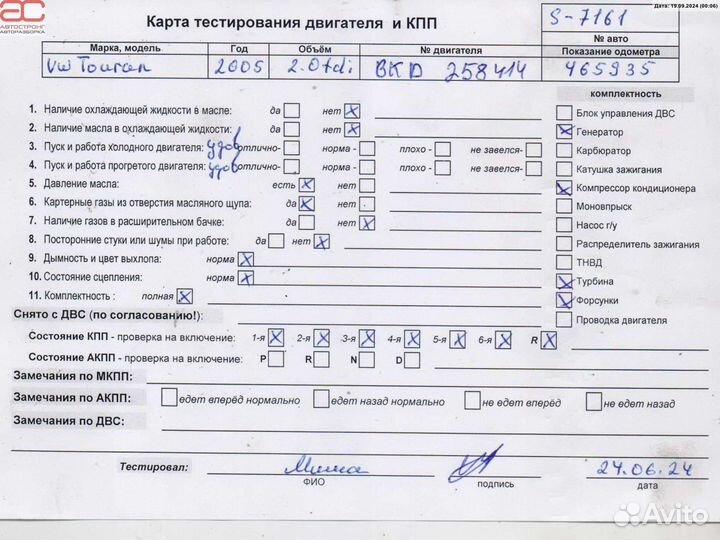 АС
АВТОСТРОНГ
АВТОРАЗБОРКА
Дата: 19.09.2024 (00:06)
Карта тестирования двигателя и КПП
S-7161
№ авто
Марка, модель Год Объём № двигателя Показание одометра
VW Touran 2005 2.0tdi BKD 258414 465935
комплектность
1. Наличие охлаждающей жидкости в масле: да нет X
2. Наличие масла в охлаждающей жидкости: да нет X
3. Пуск и работа холодного двигателя: удов отлично- норма - плохо - не завелся-
4. Пуск и работа прогретого двигателя: удов отлично- норма - плохо - не завелся-
5. Давление масла: есть X нет
6. Картерные газы из отверстия масляного щупа: да X нет
7. Наличие газов в расширительном бачке: да нет X
8. Посторонние стуки или шумы при работе: да нет X
9. Дымность и цвет выхлопа: норма X
10. Состояние сцепления: норма X
11. Комплектность : полная X
Блок управления ДВС
X Генератор
Карбюратор
Катушка зажигания
X Компрессор кондиционера
Моновпрыск
Насос г/у
Распределитель зажигания
ТНВД
X Турбина
X Форсунки
Проводка двигателя
Снято с ДВС (по согласованию!):
Состояние КПП - проверка на включение: 1-я X 2-я X 3-я X 4-я X 5-я X 6-я X R X
Состояние АКПП - проверка на включение: P R N D
Замечания по МКПП:
Замечания по АКПП: едет вперёд нормально едет назад нормально не едет вперёд не едет назад
Замечания по ДВС:
Тестировал: Миша 24.06.24
ФИО подпись дата
Avito